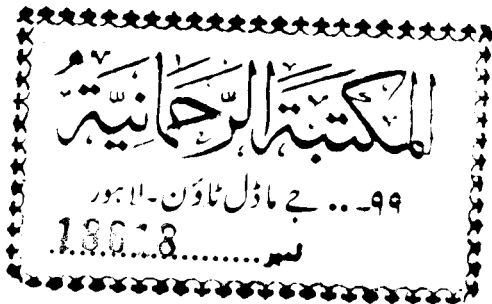 المكتبة الرحمانية
۹۹۔۔۔ جے ماڈل ٹاؤن۔ لاہور
نمبر.....18618.....